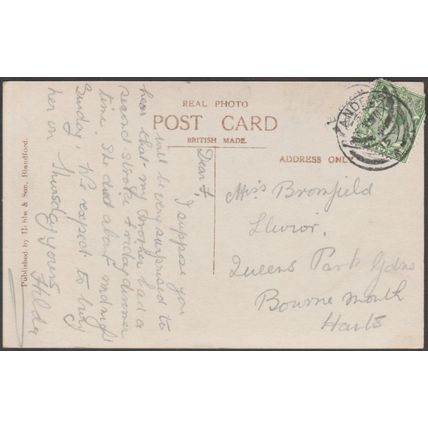 REAL PHOTO
POST CARD
BRITISH MADE.
ADDRESS ONLY
Dear F,
I suppose you
will be very surprised to
hear that my mother had a
second stroke Friday dinner
time she died about midnight
Sunday. We expect to bury
her on Thursday yours
Hilda
Miss Bromfield
Queens Park Gdns
Bourne Mouth
Hants
Published by & Son, Blandford.